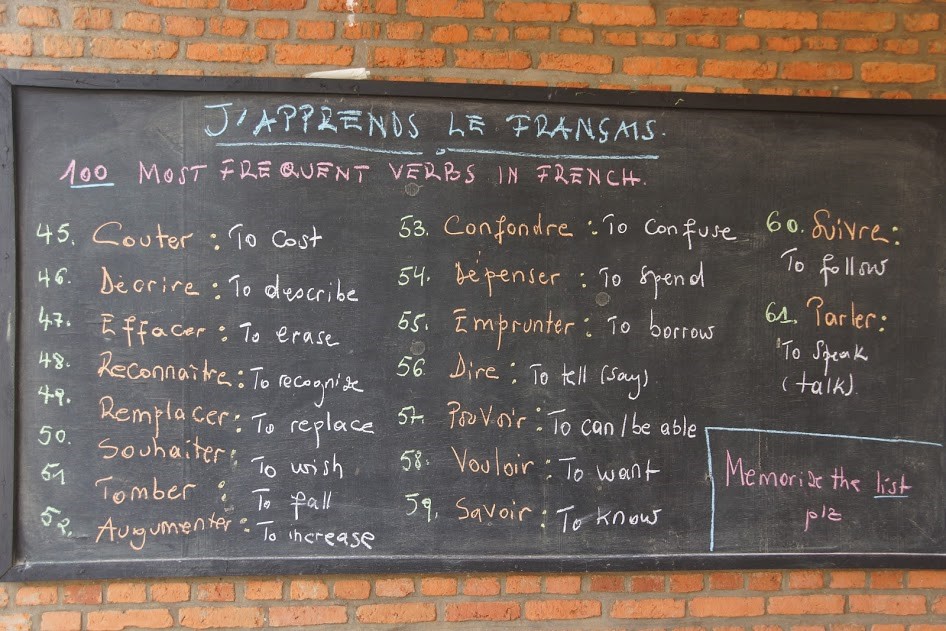 J'APPRENDS LE FRANÇAIS.
100 MOST FREQUENT VERBS IN FRENCH.
45. Couter : To cost
46. Décrire : To describe
47. Effacer : To erase
48. Reconnaître : To recognize
49. Remplacer : To replace
50. Souhaiter : To wish
51 Tomber : To fall
52. Augumenter : To increase
53. Confondre : To confuse
54. Dépenser : To spend
55. Emprunter : To borrow
56 Dire : To tell (say)
57. Pouvoir : To can/be able
58. Vouloir : To want
59. Savoir : To know
60. Suivre :
To follow
61. Parler :
To speak
(talk).
Memorize the list
plz